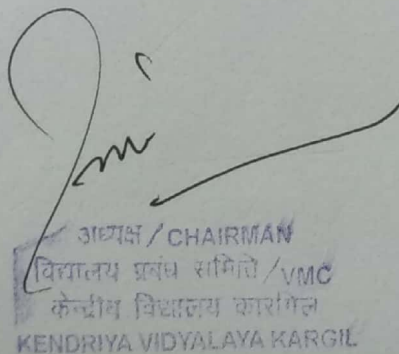 अध्यक्ष / CHAIRMAN
विद्यालय प्रबंध समिति / VMC
केन्द्रीय विद्यालय कारगिल
KENDRIYA VIDYALAYA KARGIL